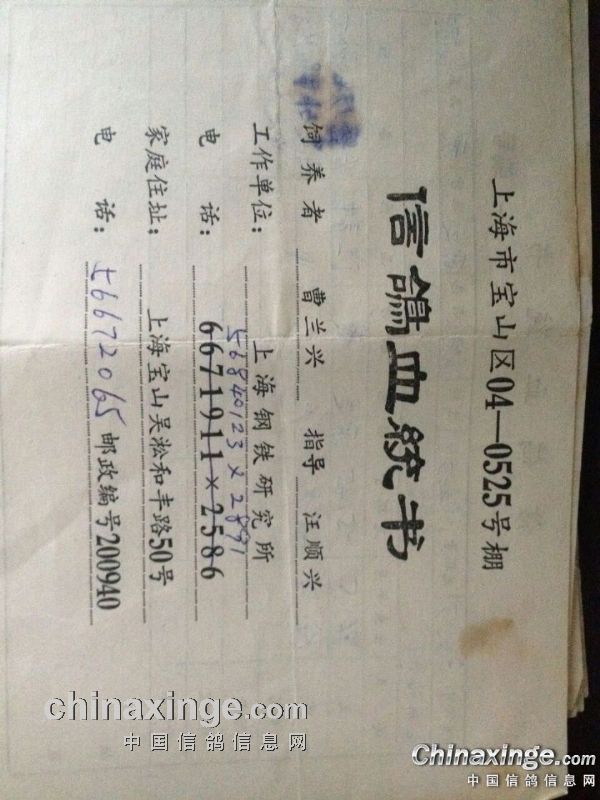 上海市宝山区04—0525号棚
信鸽血统书
饲养者 曹兰兴 指导 汪顺兴
工作单位: 上海钢铁研究所
56840123×2891
电 话: 6671911×2586
家庭住址: 上海宝山吴淞和丰路50号
电 话: 56672065 邮政编号200940
chinaxinge.com
中国信鸽信息网
Chinaxinge.com
中国信鸽信息网